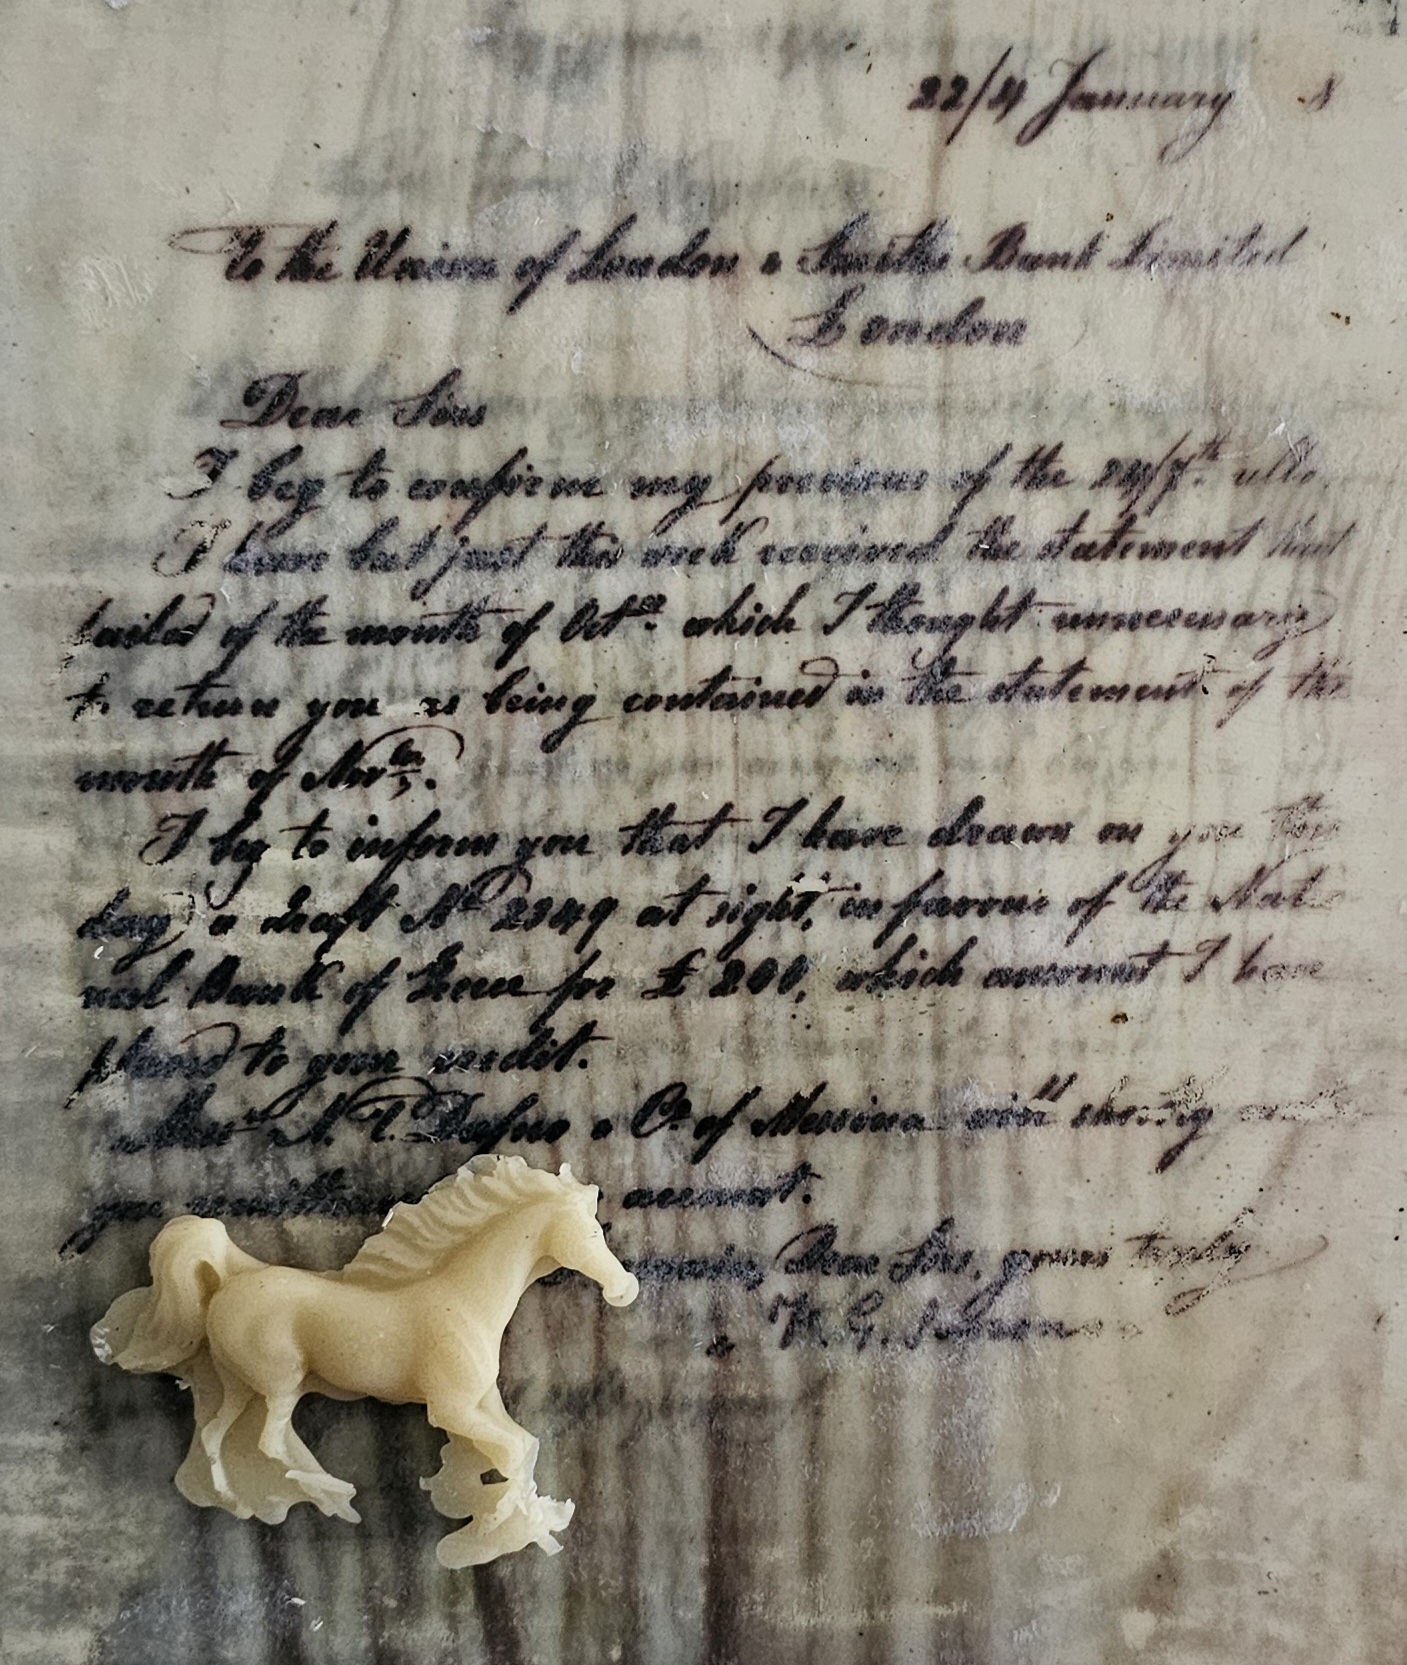 22/4 January
To the Union of London & Smiths Bank Limited
London
Dear Sirs
I beg to confirm my previous of the 24/7th ulto.
I have but just this week received the statement
of the month of Octer. which I thought unnecessary
to return you as being contained in the statement of the
month of Novber.
I beg to inform you that I have drawn on you this
day a draft No 2349 at sight, in favour of the Natio
nal Bank of Greece for £ 200, which amount I have
placed to your credit.
N. T. & Co. of Messina will shortly
you account.
Dear Sirs, yours truly